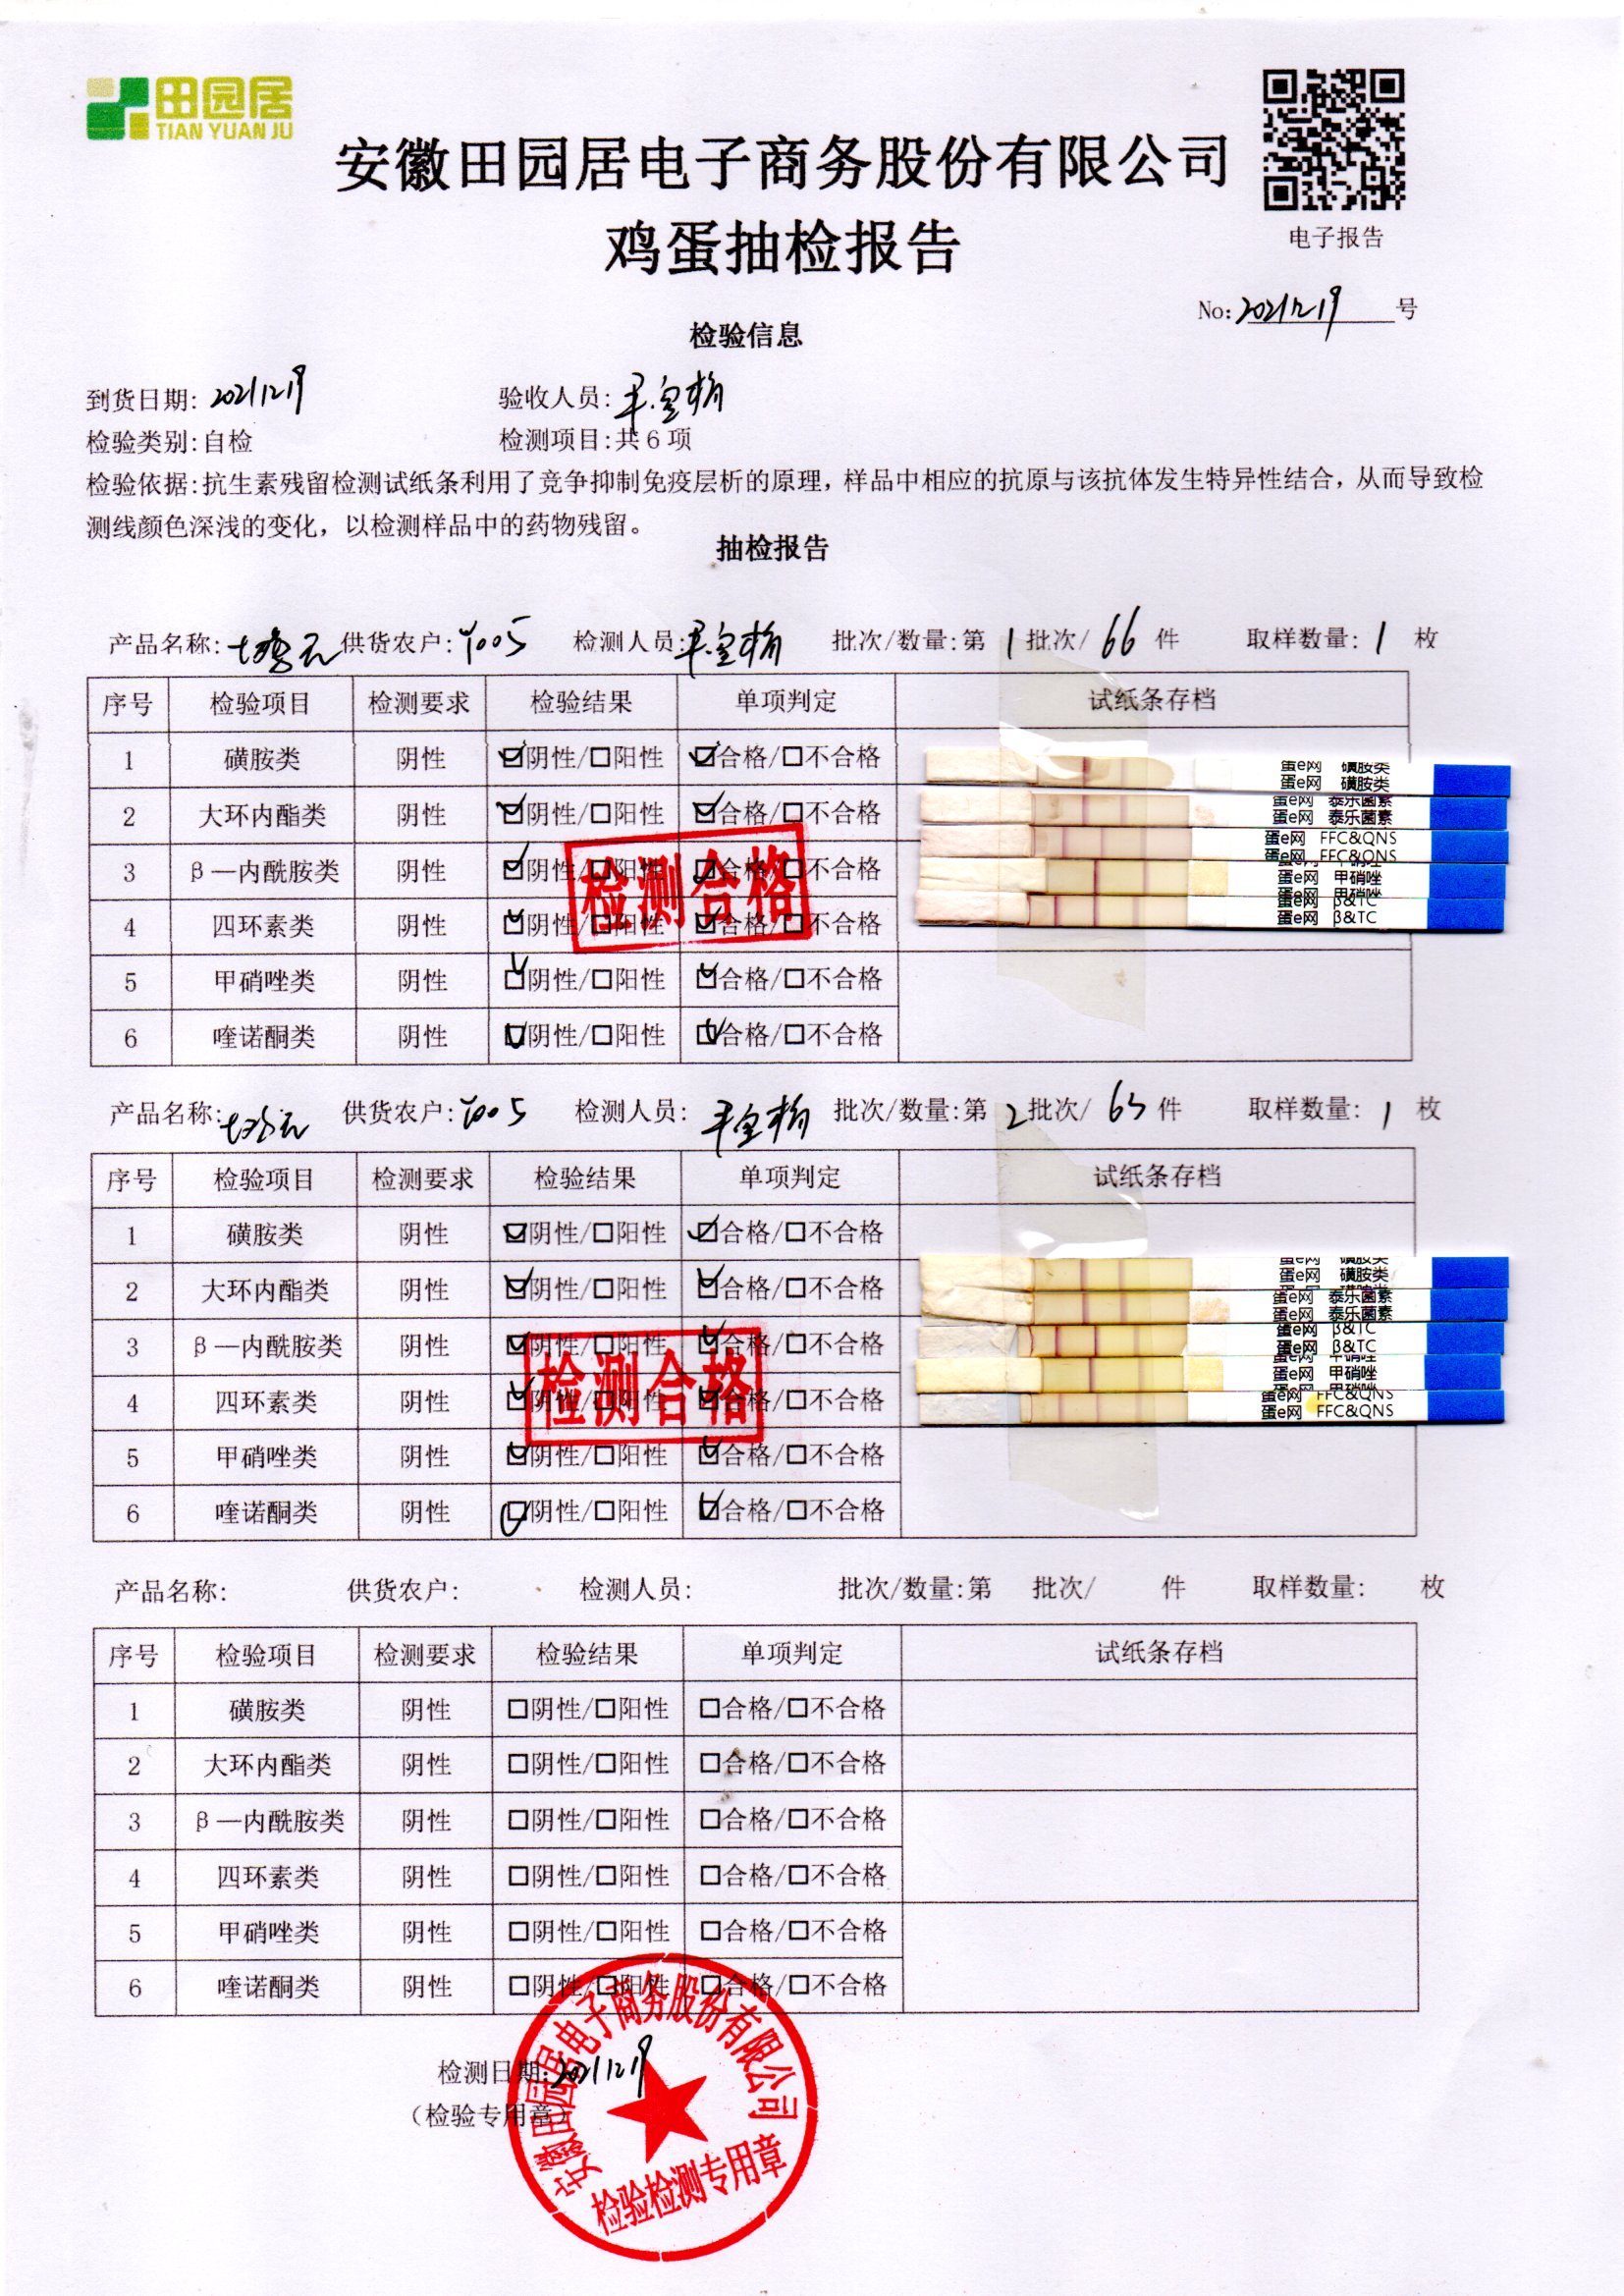 田园居
TIAN YUAN JU
安徽田园居电子商务股份有限公司
鸡蛋抽检报告
电子报告
No:20211219号
检验信息
到货日期:20211219 验收人员:
检验类别:自检 检测项目:共6项
检验依据:抗生素残留检测试纸条利用了竞争抑制免疫层析的原理，样品中相应的抗原与该抗体发生特异性结合，从而导致检
测线颜色深浅的变化，以检测样品中的药物残留。
抽检报告
产品名称: 供货农户:Y005 检测人员: 批次/数量:第1批次/66件 取样数量:1枚
序号 检验项目 检测要求 检验结果 单项判定 试纸条存档
1 磺胺类 阴性 ☑阴性/□阳性 ☑合格/□不合格
2 大环内酯类 阴性 ☑阴性/□阳性 ☑合格/□不合格
3 β—内酰胺类 阴性 ☑阴性/□阳性 ☑合格/□不合格
4 四环素类 阴性 ☑阴性/□阳性 ☑合格/□不合格
5 甲硝唑类 阴性 ☑阴性/□阳性 ☑合格/□不合格
6 喹诺酮类 阴性 ☑阴性/□阳性 ☑合格/□不合格
检测合格
蛋e网 磺胺类
蛋e网 磺胺类
蛋e网 泰乐菌素
蛋e网 泰乐菌素
蛋e网 FFC&QNS
蛋e网 FFC&QNS
蛋e网 甲硝唑
蛋e网 甲硝唑
蛋e网 β&TC
蛋e网 β&TC
产品名称: 供货农户:Y005 检测人员: 批次/数量:第2批次/65件 取样数量:1枚
序号 检验项目 检测要求 检验结果 单项判定 试纸条存档
1 磺胺类 阴性 ☑阴性/□阳性 ☑合格/□不合格
2 大环内酯类 阴性 ☑阴性/□阳性 ☑合格/□不合格
3 β—内酰胺类 阴性 ☑阴性/□阳性 ☑合格/□不合格
4 四环素类 阴性 ☑阴性/□阳性 ☑合格/□不合格
5 甲硝唑类 阴性 ☑阴性/□阳性 ☑合格/□不合格
6 喹诺酮类 阴性 ☑阴性/□阳性 ☑合格/□不合格
检测合格
蛋e网 磺胺类
蛋e网 磺胺类
蛋e网 泰乐菌素
蛋e网 泰乐菌素
蛋e网 β&TC
蛋e网 β&TC
蛋e网 甲硝唑
蛋e网 甲硝唑
蛋e网 FFC&QNS
蛋e网 FFC&QNS
产品名称: 供货农户: 检测人员: 批次/数量:第 批次/ 件 取样数量: 枚
序号 检验项目 检测要求 检验结果 单项判定 试纸条存档
1 磺胺类 阴性 □阴性/□阳性 □合格/□不合格
2 大环内酯类 阴性 □阴性/□阳性 □合格/□不合格
3 β—内酰胺类 阴性 □阴性/□阳性 □合格/□不合格
4 四环素类 阴性 □阴性/□阳性 □合格/□不合格
5 甲硝唑类 阴性 □阴性/□阳性 □合格/□不合格
6 喹诺酮类 阴性 □阴性/□阳性 □合格/□不合格
检测日期:20211219
（检验专用章）
安徽田园居电子商务股份有限公司
检验检测专用章